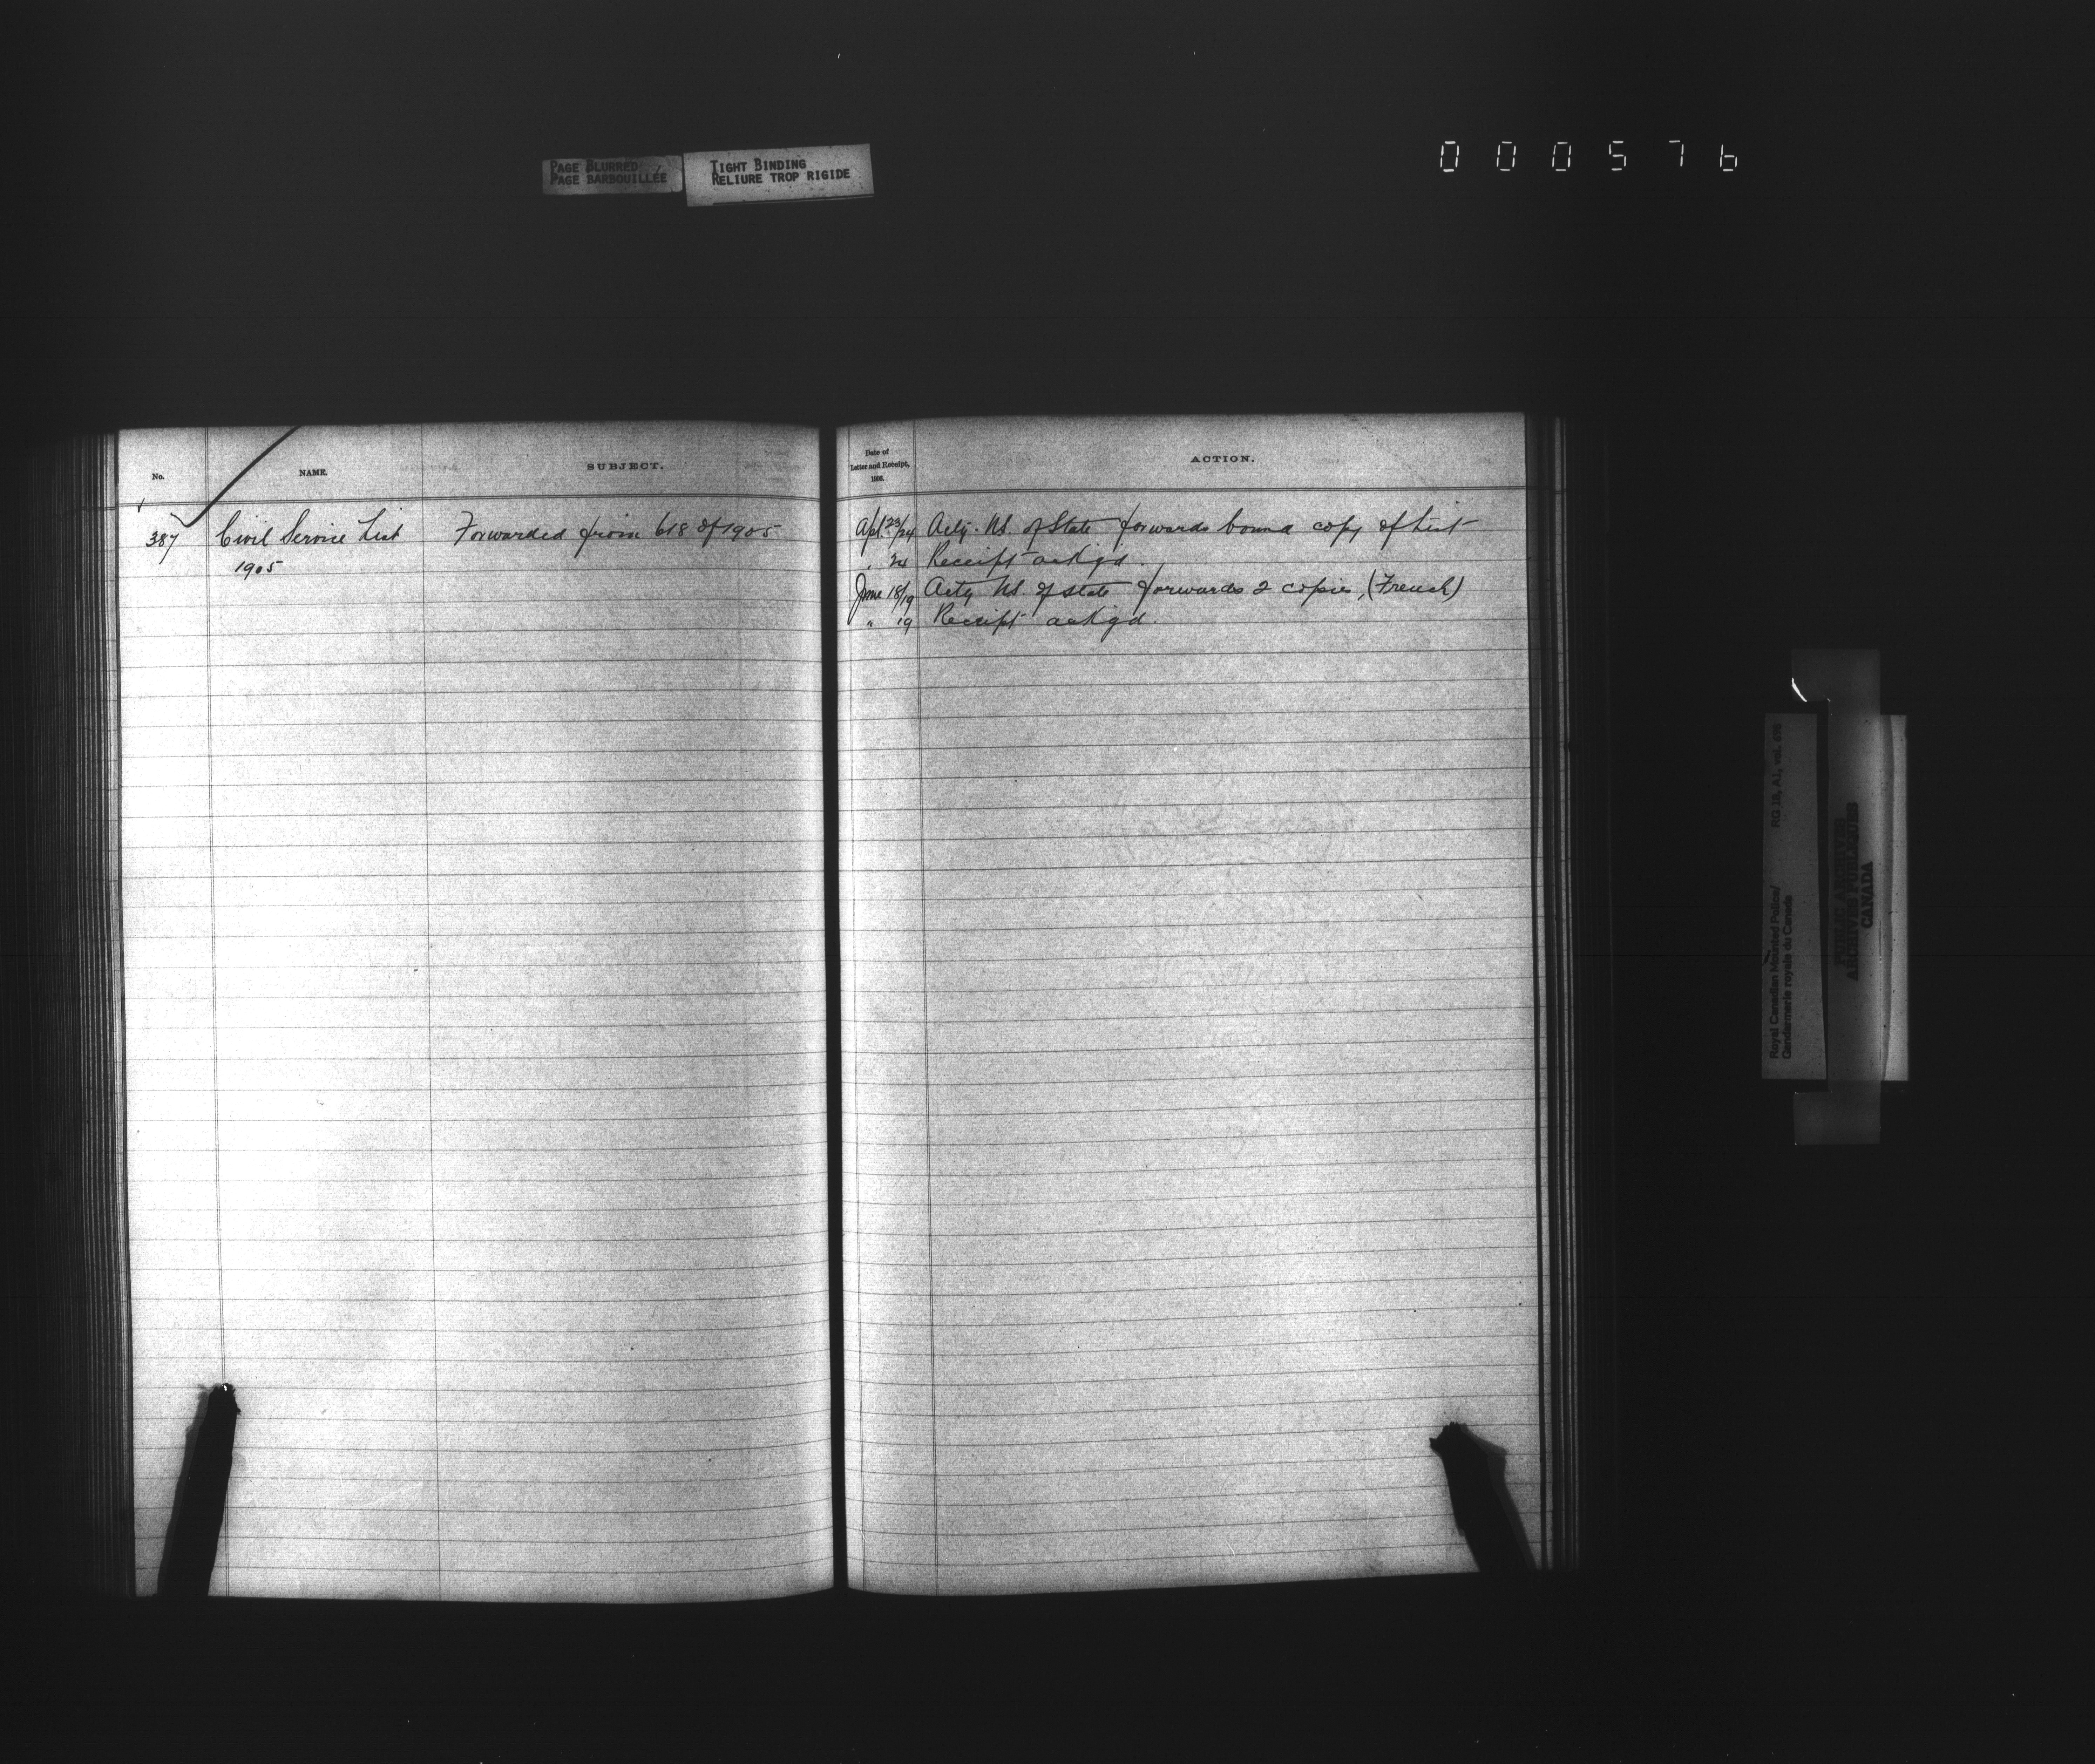 PAGE BLURRED
PAGE BARBOUILLÉE
TIGHT BINDING
RELIURE TROP RIGIDE
000576
No.
NAME.
SUBJECT.
387
Civil Service List
Forwarded from 618 of 1905
1905
Date of
Letter and Receipt,
1906.
ACTION.
Apl. 23/24 Actg. U.S. of State forwards bound copy of List
" 24 Receipt ackgd.
June 18/19 Actg U.S. of State forwards 2 copies, (French)
" 19 Receipt ackgd.
Royal Canadian Mounted Police/ RG 18, A1, vol.
Gendarmerie royale du Canada
PUBLIC ARCHIVES
ARCHIVES PUBLIQUES
CANADA